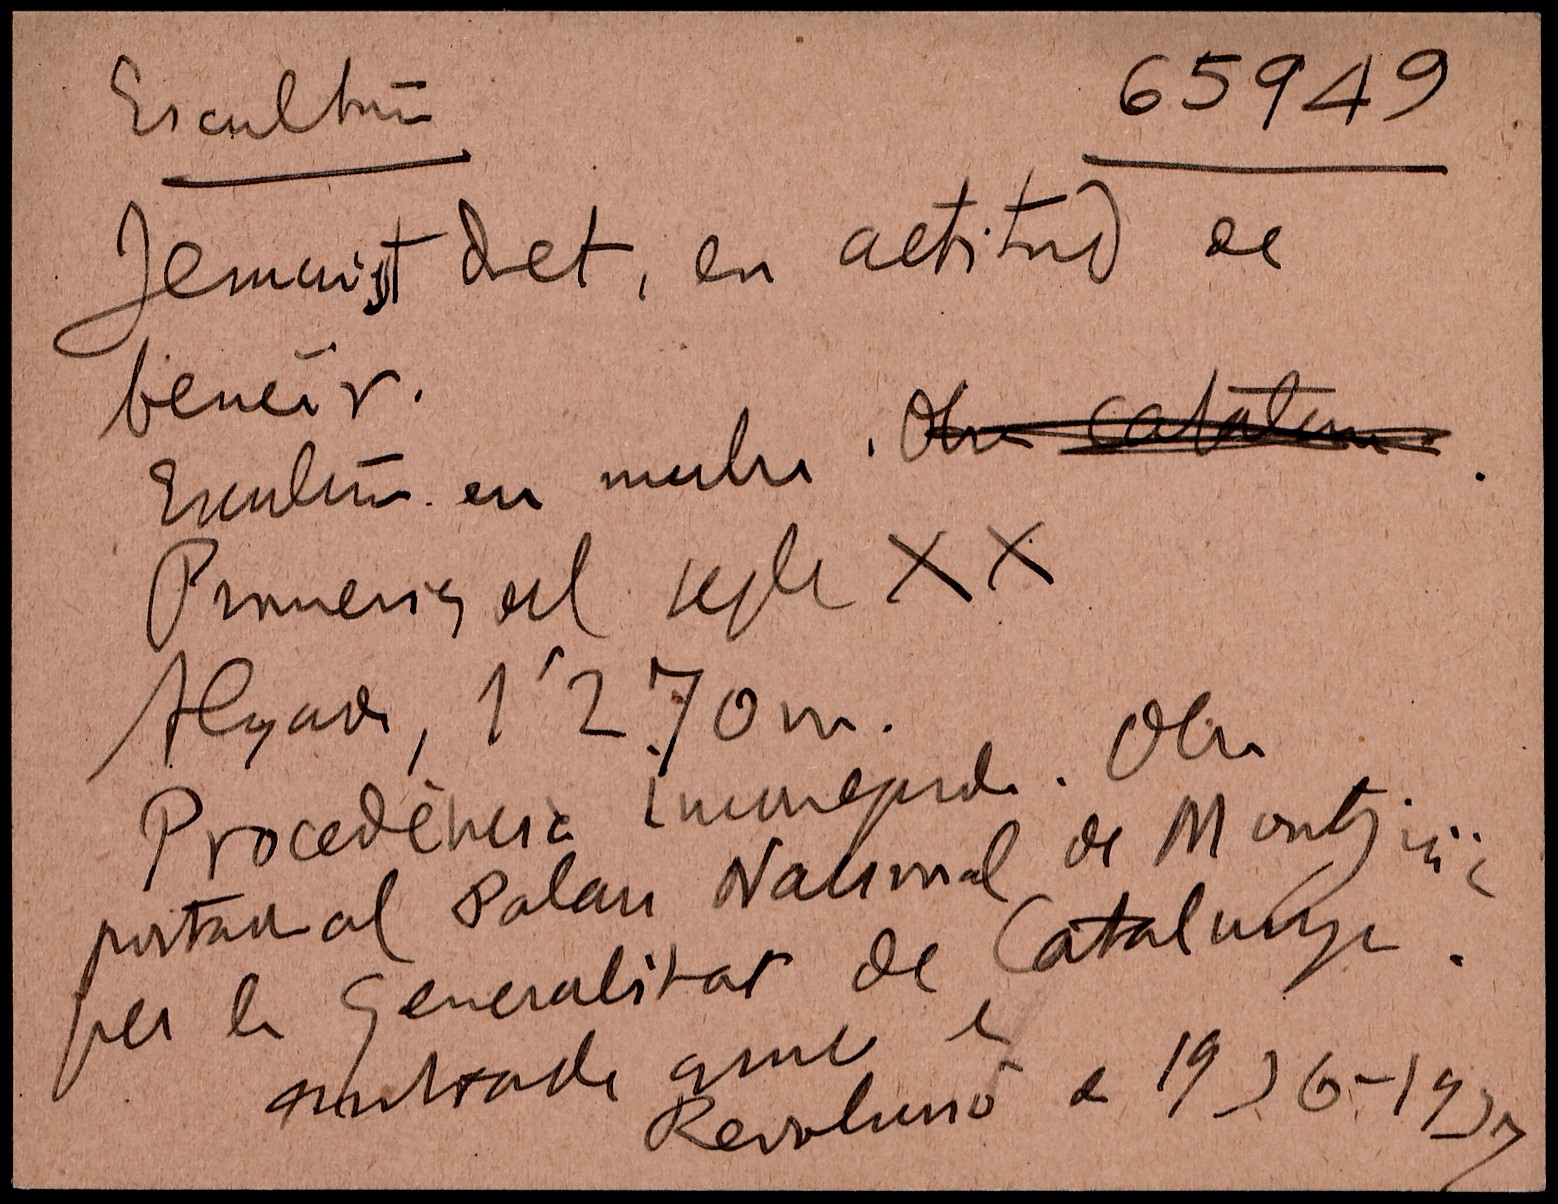 Escultura 65949
Jesucrist dret, en actitud de
beneir.
Escultura en marbre. Obra catalana.
Primeries del segle XX
Alçada, 1'270 m.
Procedència inconeguda. Obra
portada al Palau Nacional de Montjuïc
per la Generalitat de Catalunya.
durant la
Revolució de 1936-1937